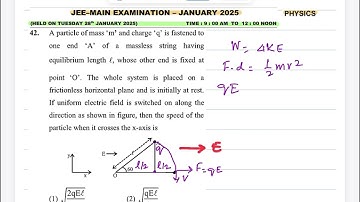 JEE-MAIN EXAMINATION – JANUARY 2025
PHYSICS
(HELD ON TUESDAY 28th JANUARY 2025)
TIME : 9 : 00 AM TO 12 : 00 NOON
42. A particle of mass 'm' and charge 'q' is fastened to
one end 'A' of a massless string having
equilibrium length ℓ, whose other end is fixed at
point 'O'. The whole system is placed on a
frictionless horizontal plane and is initially at rest.
If uniform electric field is switched on along the
direction as shown in figure, then the speed of the
particle when it crosses the x-axis is
W = ΔKE
F·d = 1/2 mv²
qE
E
y
x
q
60
O
l/2
l/2
F=qE
V
(1) √(2qEℓ
(2) √(qEℓ